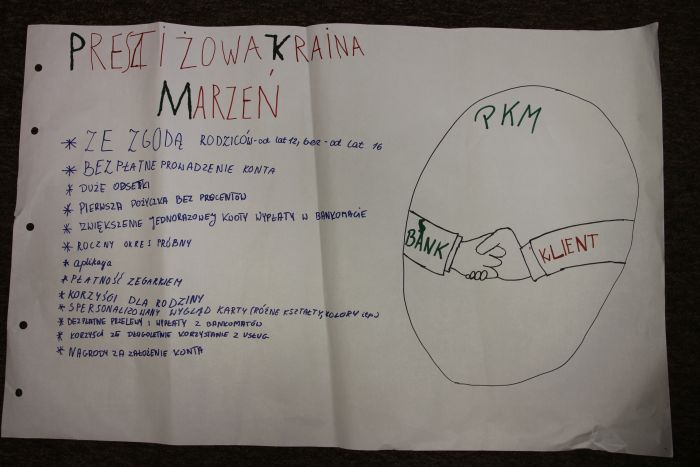 PRESTIŻOWA KRAINA
MARZEŃ
* ZE ZGODĄ RODZICÓW - od lat 12, bez - od lat 16
* BEZPŁATNE PROWADZENIE KONTA
* DUŻE ODSETKI
* PIERWSZA POŻYCZKA BEZ PROCENTÓW
* ZWIĘKSZENIE JEDNORAZOWEJ KWOTY WYPŁATY W BANKOMACIE
* ROCZNY OKRES PRÓBNY
* aplikacja
* PŁATNOŚĆ ZEGARKIEM
* KORZYŚCI DLA RODZINY
* SPERSONALIZOWANY WYGLĄD KARTY (RÓŻNE KSZTAŁTY, KOLORY
* BEZPŁATNE PRZELEWY I WYPŁATY Z BANKOMATÓW
* KORZYŚCI ZE DŁUGOLETNIE KORZYSTANIE Z USŁUG
* NAGRODY ZA ZAŁOŻENIE KONTA
PKM
BANK
KLIENT